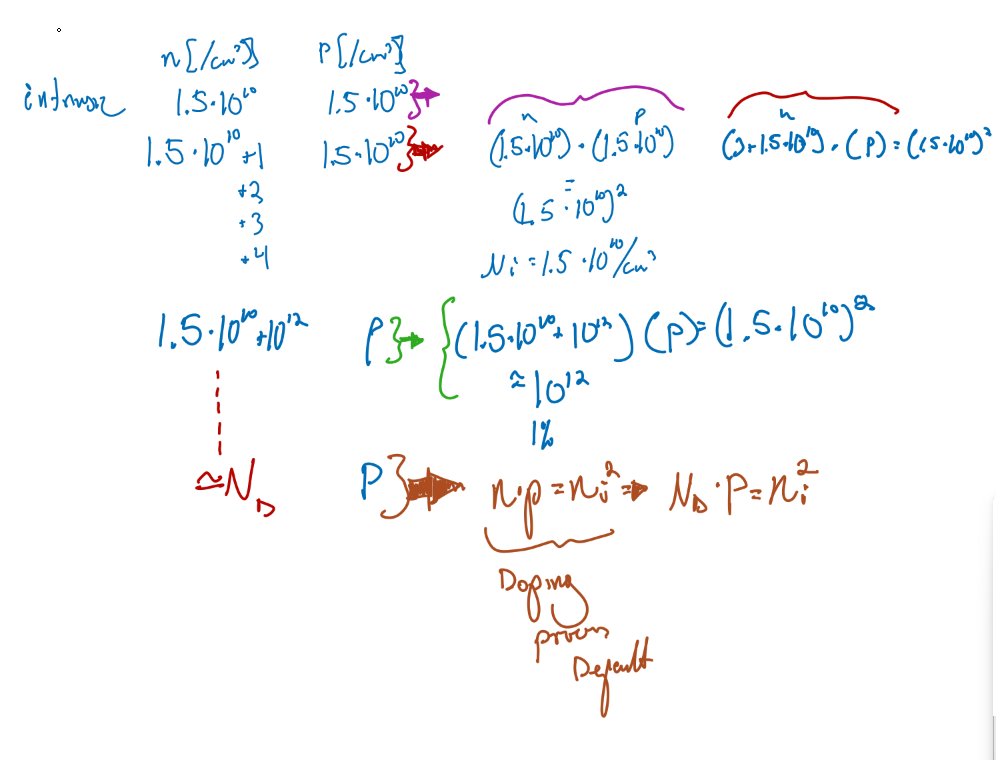 n[/cm³] p[/cm³]
intrinsic 1.5·10¹⁰ 1.5·10¹⁰
1.5·10¹⁰+1 1.5·10¹⁰
+2
+3
+4
n p
(1.5·10¹⁰)·(1.5·10¹⁰)
=
(1.5·10¹⁰)²
Ni=1.5·10¹⁰/cm³
n
·(p)=(1.5·10¹⁰)²
1.5·10¹⁰+10¹² p (1.5·10¹⁰+10¹²)(p)=(1.5·10¹⁰)²
≈10¹²
1%
≃N_D P n·p=n_i² → N_D·P=n_i²
Doping
Default